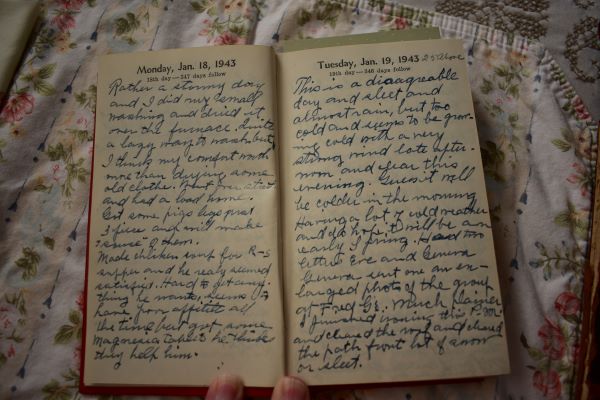 Monday, Jan. 18, 1943
18th day—347 days follow
Rather a stormy day
and I did my small
washing and dried it
over the furnace. Quite
a lazy way to wash but
I think my comfort worth
more than drying some
old clothes. Went over
and had a load home.
Got some pigs legs just
I piece and will make
souse of them.
Made chicken soup for R-s
supper and he really seemed
satisfied. Hard to get any-
thing he wants, seems to
have poor appetite all
the time but got some
Magnesia tablets he thinks
they help him.
Tuesday, Jan. 19, 1943 25 above
19th day—346 days follow
This is a disagreeable
day and sleet and
almost rain, but too
cold and seems to be grow-
ing cold with a very
strong wind late after-
noon and fear this
evening. Guess it will
be colder in the morning
Having a lot of cold weather
and do hope it will be an
early Spring. Had two
letters Eve and Geneva
Geneva sent one an en-
larged photo of the group
at Fred G's. Much
I finished ironing this P.M.
and cleaned the
the path front lot of snow
or sleet.